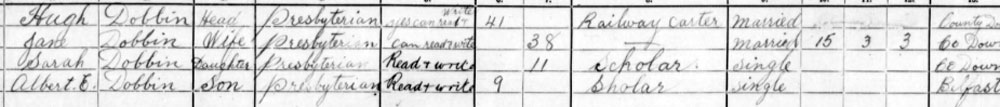 Hugh Dobbin Head Presbyterian write 41 Railway Carter Married County
Jane Dobbin Wife Presbyterian can read & write 38 — Married 15 3 3 Co Down
Sarah Dobbin Daughter Presbyterian Read & write 11 Scholar Single Co Down
Albert E. Dobbin Son Presbyterian Read & write 9 Sholar Single Belfast